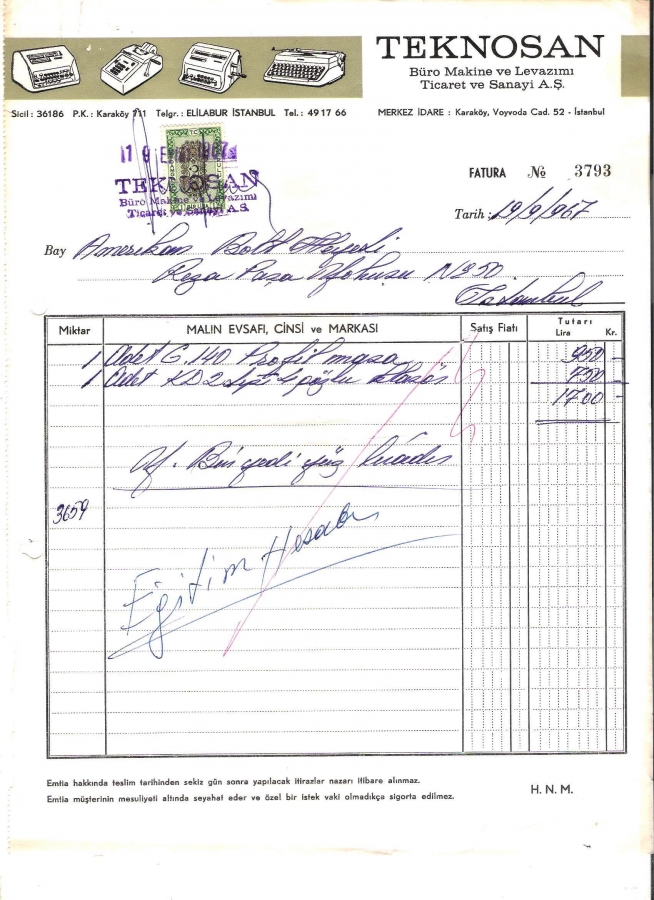 TEKNOSAN
Büro Makine ve Levazımı
Ticaret ve Sanayi A.Ş.
Sicil : 36186 P.K. : Karaköy 711 Telgr. : ELİLABUR İSTANBUL Tel. : 49 17 66
MERKEZ İDARE : Karaköy, Voyvoda Cad. 52 - İstanbul
19 1967
TEKNOSAN
Büro Makine ve Levazımı
Ticaret ve Sanayi A.Ş.
FATURA № 3793
Tarih : 19/9/967
Bay Amerikan Bord Heyeti
Rıza Paşa Yokuşu N 50
İstanbul
Miktar MALIN EVSAFI, CİNSİ ve MARKASI Satış Fiatı Tutarı
Lira Kr.
1 Adet G. 140 Profil masa 950 -
1 Adet KD 2 tipi 4 gözlü klasör 750 -
1700 -
Yf. Bin yedi yüz liradır
3659
Eğitim Hesabı
Emtia hakkında teslim tarihinden sekiz gün sonra yapılacak itirazlar nazarı itibare alınmaz.
Emtia müşterinin mesuliyeti altında seyahat eder ve özel bir istek vaki olmadıkça sigorta edilmez.
H. N. M.